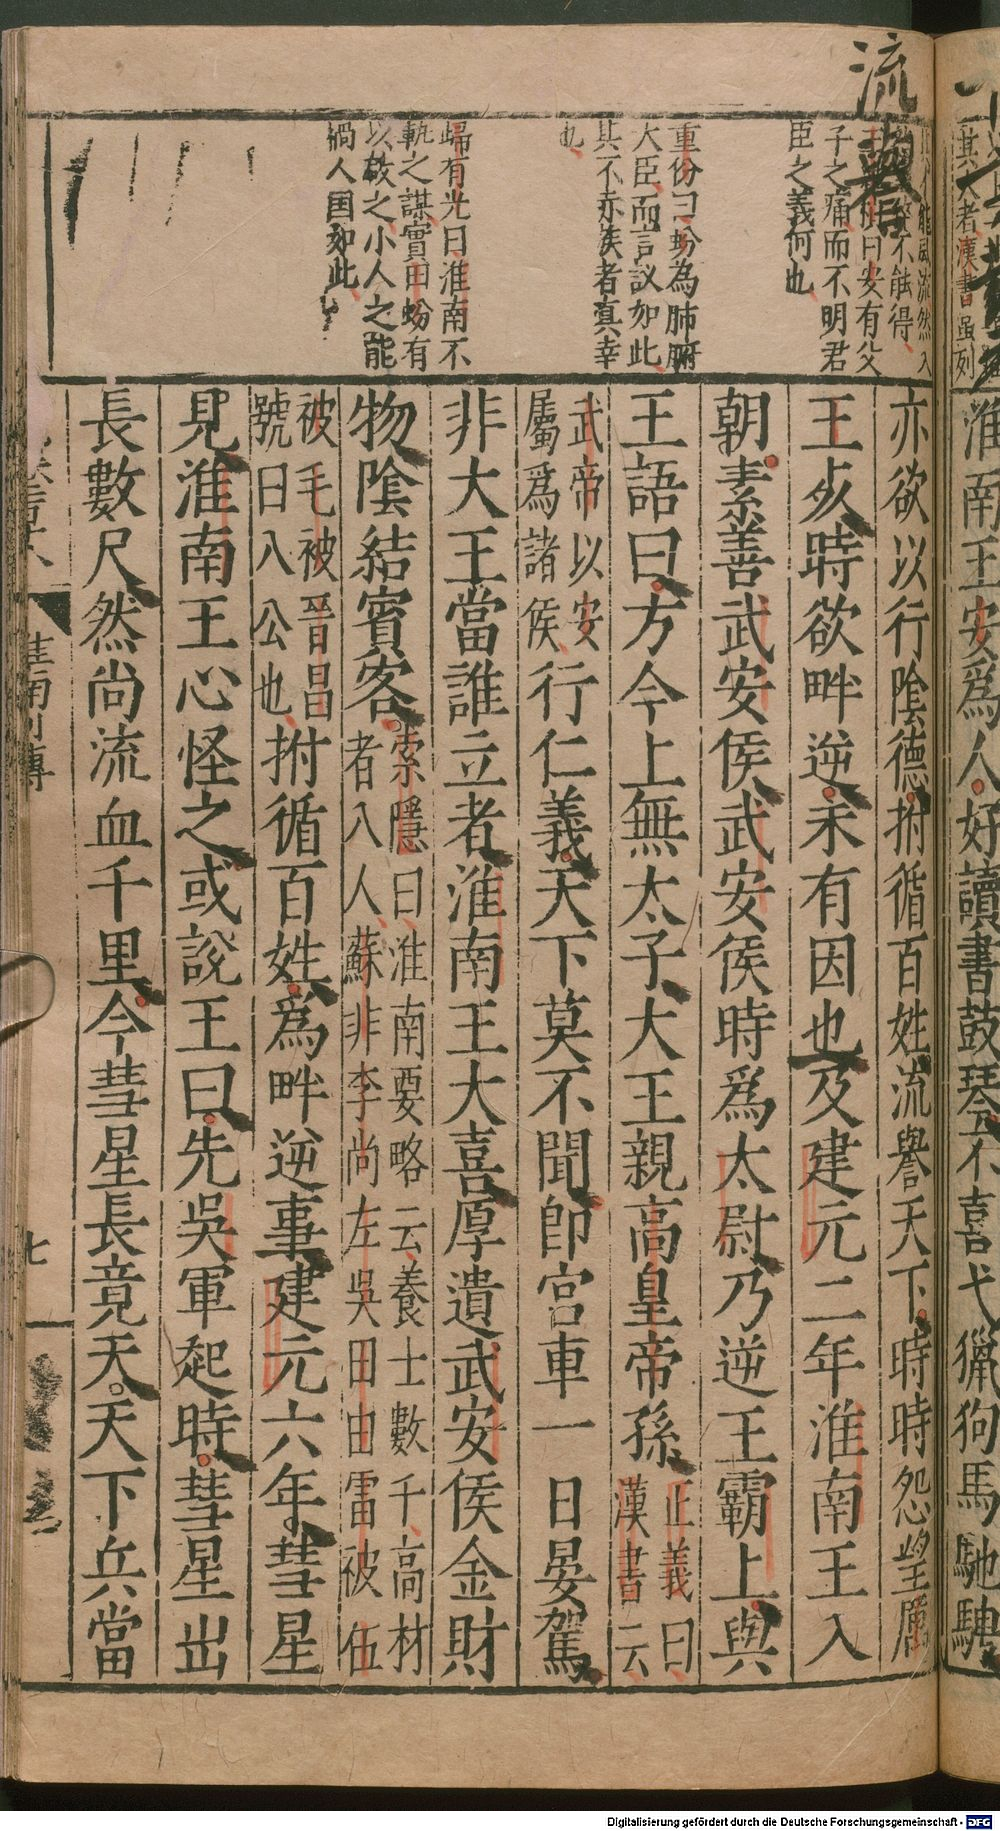 流譽
子之痛而不明君
臣之義何也
重份曰蚡為肺腑
大臣而言議如此
其不赤族者真幸
也
歸有光曰淮南不
軌之謀實田蚡有
以啟之小人之能
禍人国如此
淮南王安爲人好讀書鼓琴不喜弋獵狗馬馳騁
亦欲以行陰德拊循百姓流譽天下時時怨望厲
王死時欲畔逆未有因也及建元二年淮南王入
朝素善武安侯武安侯時爲太尉乃逆王霸上與
王語曰方今上無太子大王親高皇帝孫
正義曰
漢書云
武帝以安
屬爲諸侯
行仁義天下莫不聞即宮車一日晏駕
非大王當誰立者淮南王大喜厚遺武安侯金財
物陰結賓客
索隱曰淮南要略云養士數千高材
者八人蘇非李尚左吳田由雷被伍
被毛被晉昌
號曰八公也
拊循百姓爲畔逆事建元六年彗星
見淮南王心怪之或說王曰先吳軍起時彗星出
長數尺然尚流血千里今彗星長竟天天下兵當
淮南列傳
七
Digitalisierung gefördert durch die Deutsche Forschungsgemeinschaft - DFG